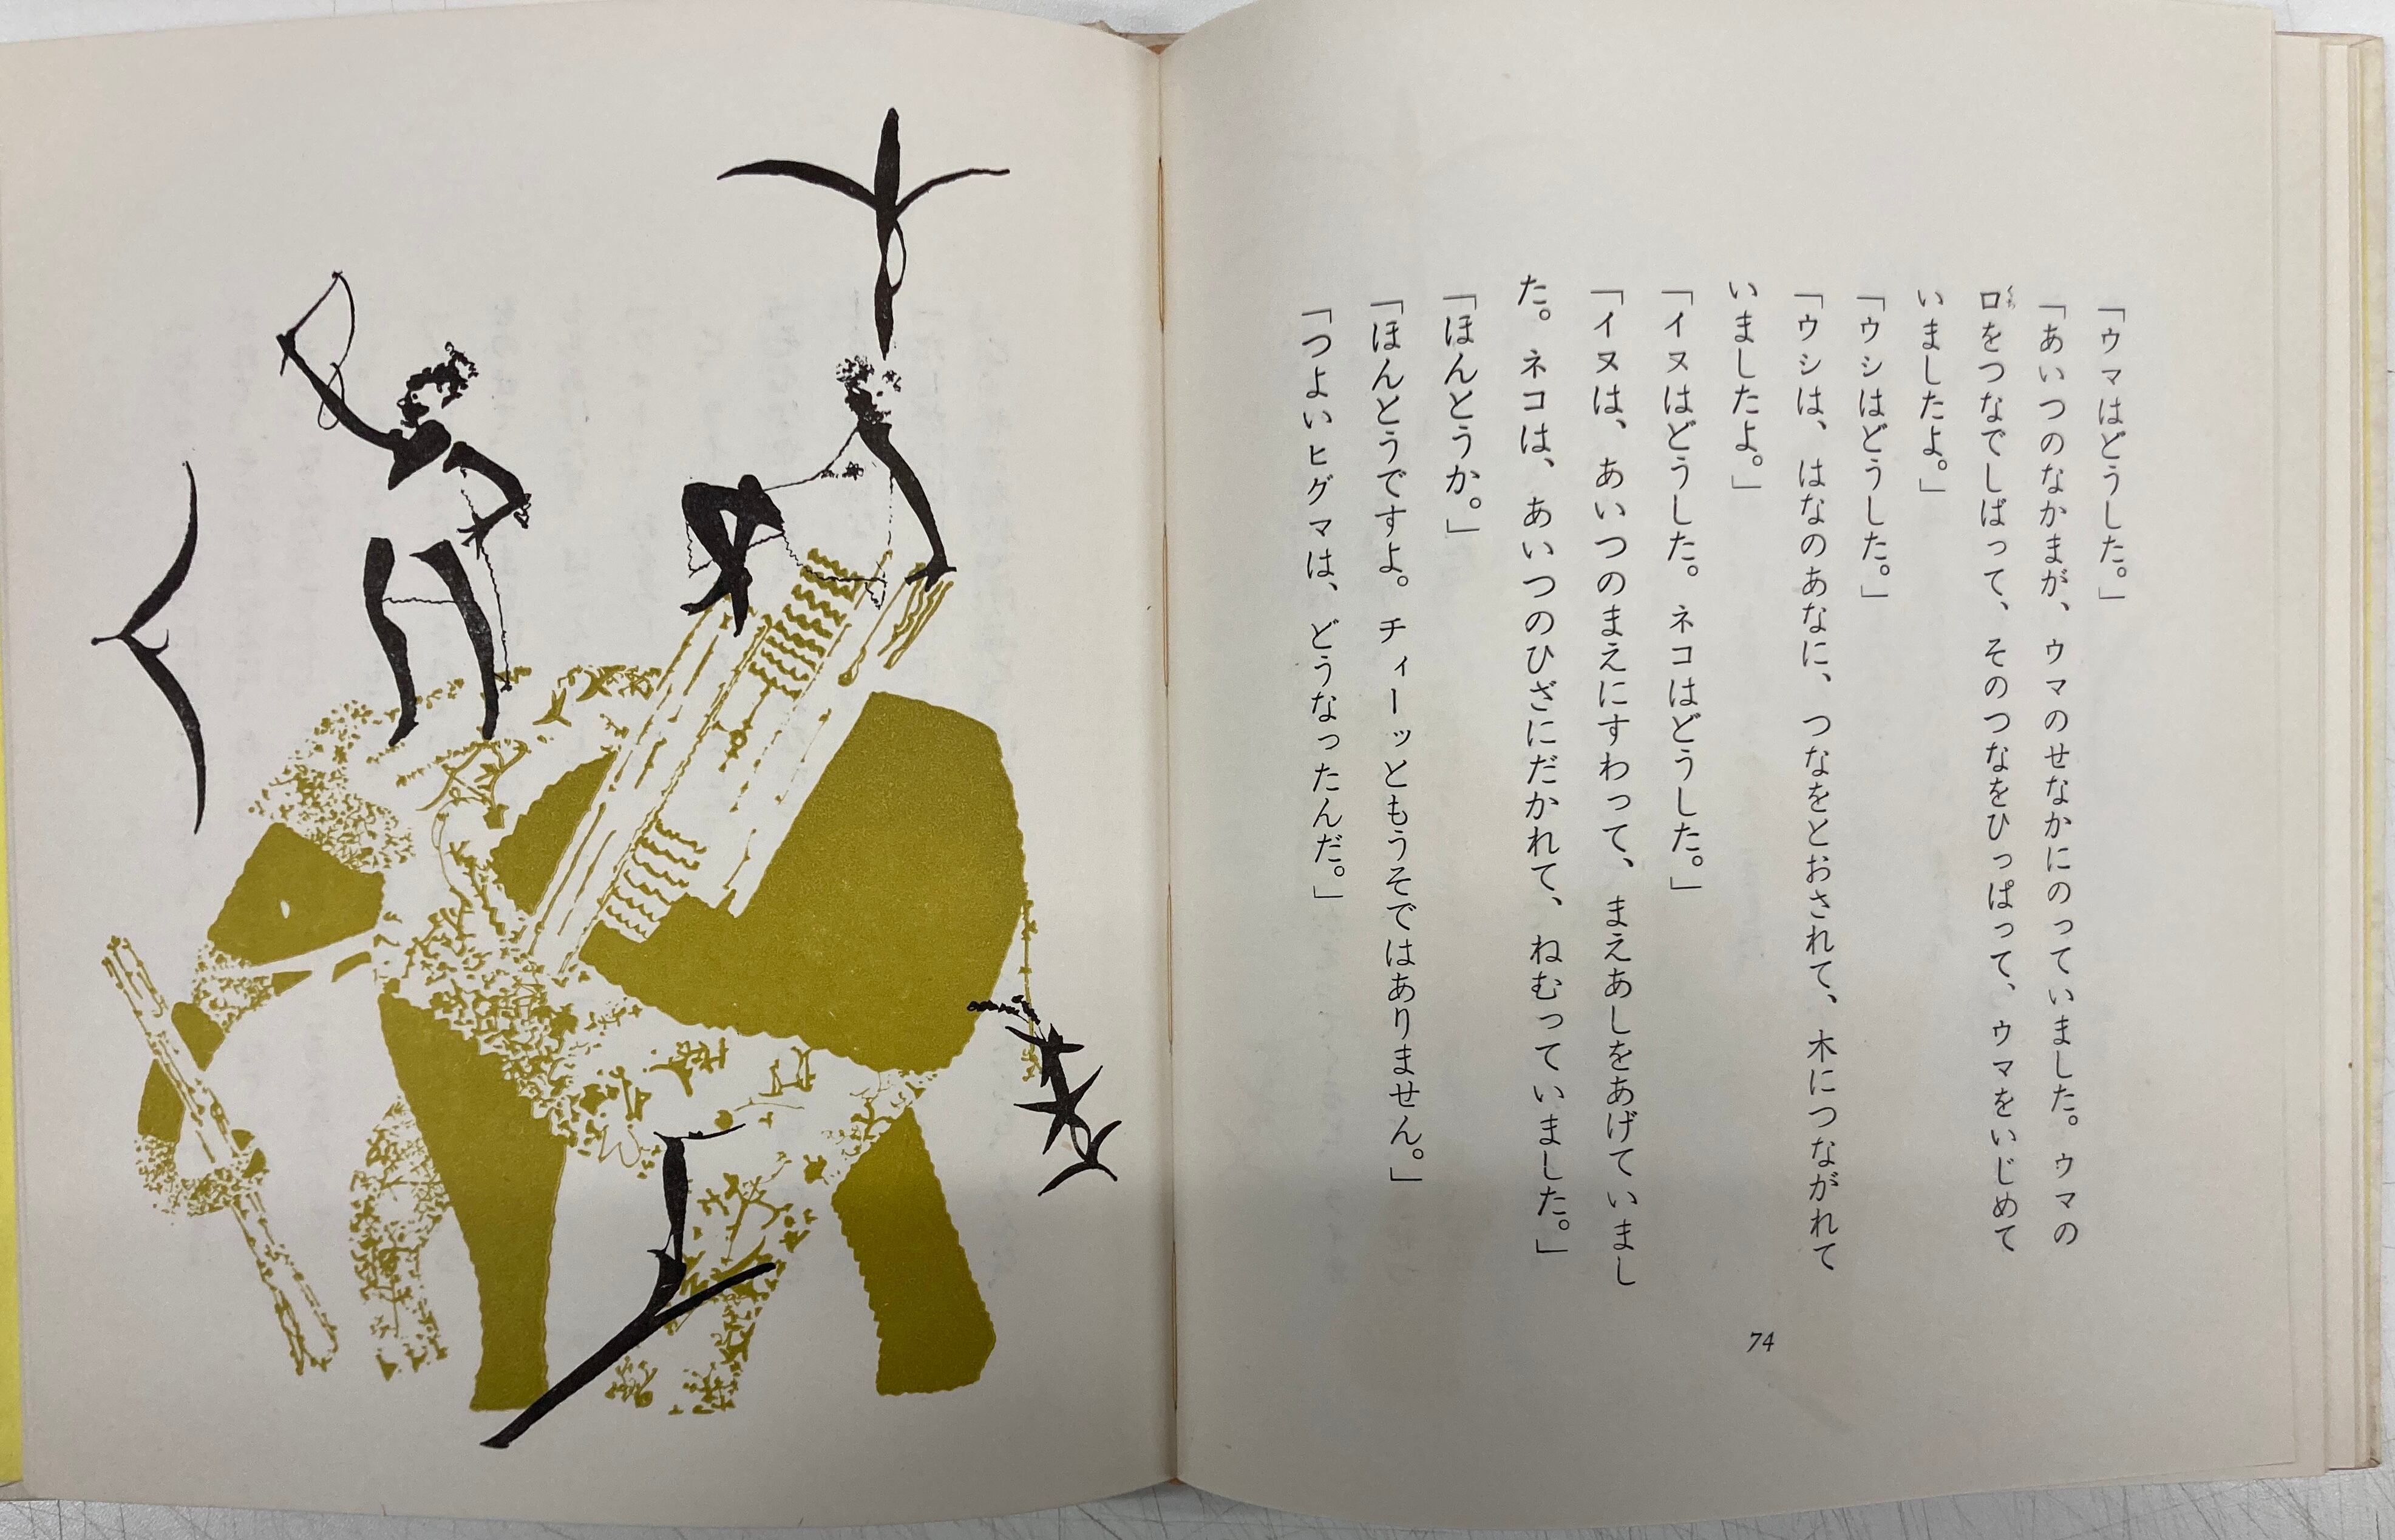 「ウマはどうした。」
「あいつのなかまが、ウマのせなかにのっていました。ウマの
口をつなでしばって、そのつなをひっぱって、ウマをいじめて
いましたよ。」
「ウシはどうした。」
「ウシは、はなのあなに、つなをとおされて、木につながれて
いましたよ。」
「イヌはどうした。ネコはどうした。」
「イヌは、あいつのまえにすわって、まえあしをあげていまし
た。ネコは、あいつのひざにだかれて、ねむっていました。」
「ほんとうか。」
「ほんとうですよ。チィーッともうそではありません。」
「つよいヒグマは、どうなったんだ。」
74